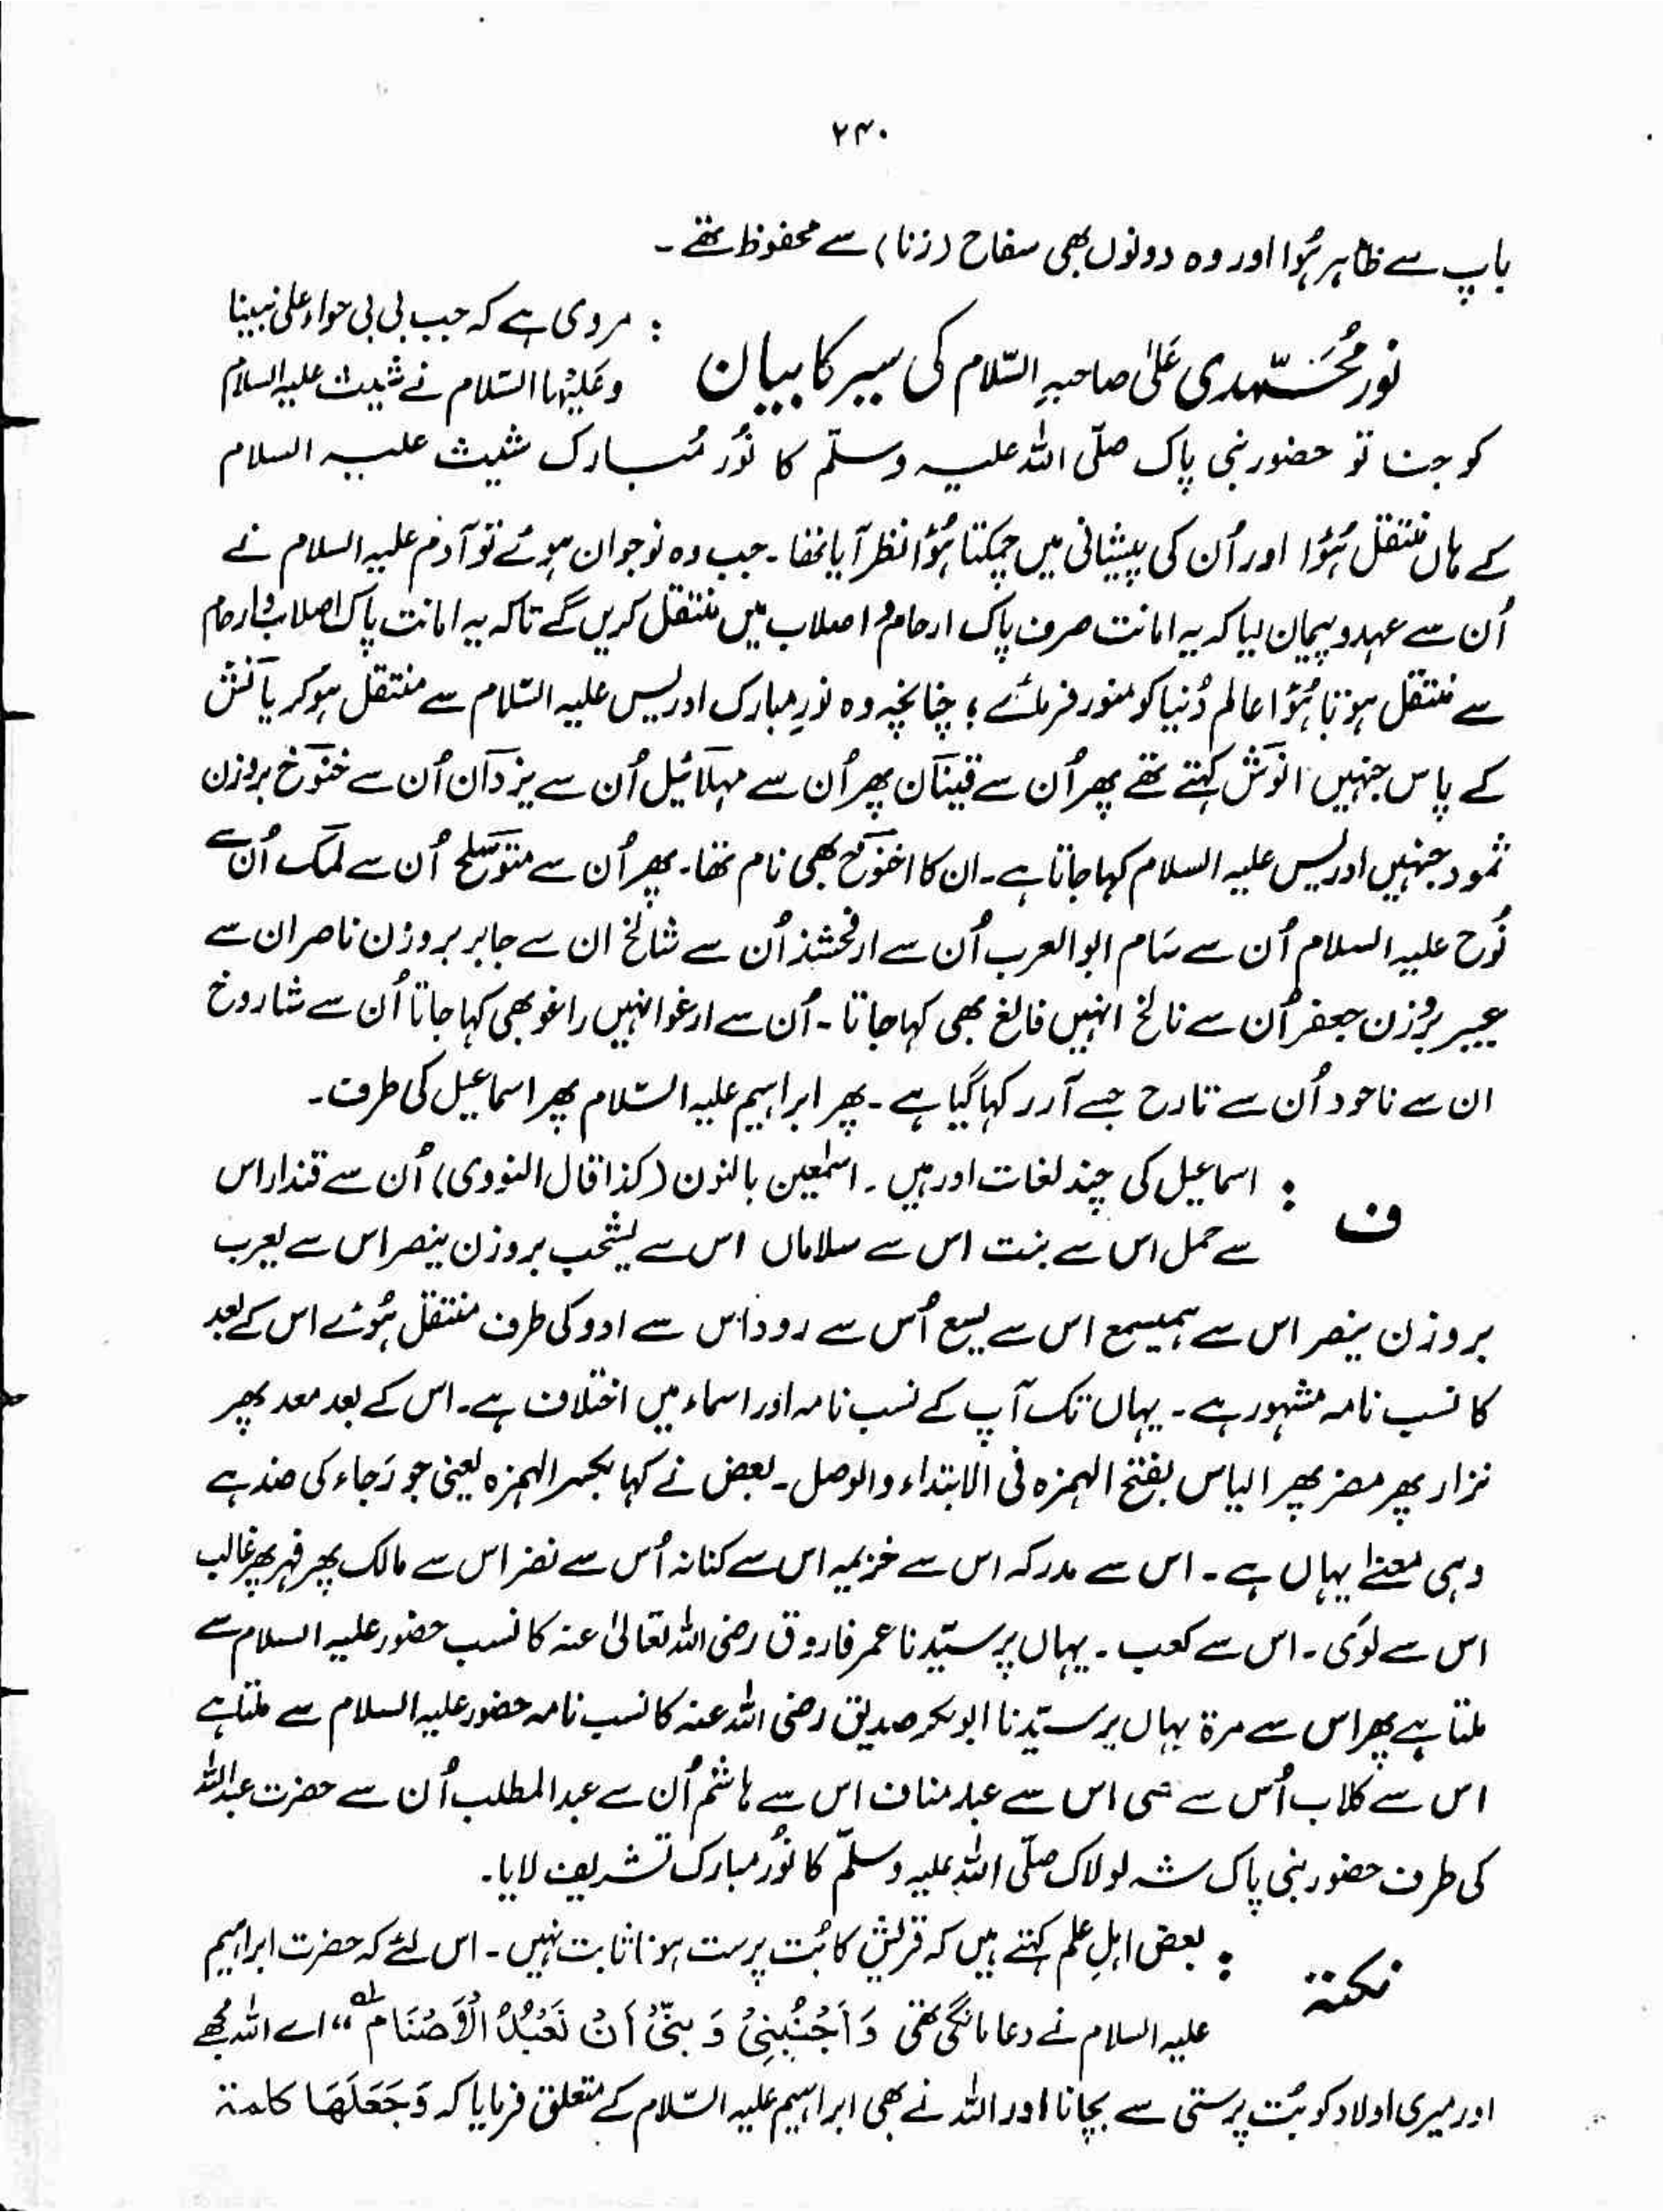 ۲۴۰
باپ سے ظاہر ہُوا اور وہ دونوں بھی سفاح (زنا) سے محفوظ تھے ۔
نور مُحَمَّدی عَلیٰ صاحبہِ السّلام کی سیر کا بیان : مروی ہے کہ جب بی بی حواء علیٰ نبینا
وعَلیْہا السّلام نے شیث علیہ السلام
کو جنا تو حضور نبی پاک صلّی اللہ علیہ وسلّم کا نُور مُبارک شیث علیہ السلام
کے ہاں منتقل ہُوا اور اُن کی پیشانی میں چمکتا ہُوا نظر آیا تھا ۔ جب وہ نوجوان ہوئے تو آدم علیہ السلام نے
اُن سے عہد و پیمان لیا کہ یہ امانت صرف پاک ارحام و اصلاب میں منتقل کریں گے تاکہ یہ امانت پاک اصلاب و ارحام
سے منتقل ہوتا ہُوا عالم دُنیا کو منور فرمائے ؛ چنانچہ وہ نورِ مبارک ادریس علیہ السّلام سے منتقل ہو کر یآنش
کے پاس جنہیں انوش کہتے تھے پھر اُن سے قینان پھر اُن سے مہلائیل اُن سے یزدآن اُن سے خنوخ بروزن
ثمود جنہیں ادریس علیہ السلام کہا جاتا ہے ۔ ان کا اخنوخ بھی نام تھا ۔ پھر اُن سے متوسلح اُن سے لمک اُن سے
نُوح علیہ السلام اُن سے سَام ابوالعرب اُن سے ارفحشذ اُن سے شالخ ان سے جابر بروزن ناصر ان سے
عیبر بروزن جعفر اُن سے نالخ انہیں فالغ بھی کہا جاتا ۔ اُن سے ارغوا انہیں راغو بھی کہا جاتا اُن سے شاروخ
ان سے ناحود اُن سے تارح جسے آرر کہا گیا ہے ۔ پھر ابراہیم علیہ السّلام پھر اسماعیل کی طرف ۔
ف : اسماعیل کی چند لغات اور ہیں ۔ اسمٰعین بالنون (کذا قال النووی) اُن سے قندار اس
سے حمل اس سے بنت اس سے سلاماں اس سے یشحب بروزن ینصر اس سے یعرب
بروزن ینصر اس سے ہمیسع اس سے یسع اُس سے رود اس سے ادو کی طرف منتقل ہُوئے اس کے بعد
کا نسب نامہ مشہور ہے ۔ یہاں تک آپ کے نسب نامہ اور اسماء میں اختلاف ہے ۔ اس کے بعد معد پھر
نزار پھر مضر پھر الیاس بفتح الہمزہ فی الابتداء والوصل ۔ بعض نے کہا بکسر الہمزہ یعنی جو رَجاء کی ضد ہے
وہی معنےٰ یہاں ہے ۔ اس سے مدرکہ اس سے خزیمہ اس سے کنانہ اُس سے نضر اس سے مالک پھر فہر پھر غالب
اس سے لوی ۔ اس سے کعب ۔ یہاں پر سیّدنا عمر فاروق رضی اللہ تعالیٰ عنہ کا نسب حضور علیہ السلام سے
ملتا ہے پھر اس سے مرۃ یہاں پر سیّدنا ابوبکر صدیق رضی اللہ عنہ کا نسب نامہ حضور علیہ السلام سے ملتا ہے
اس سے کلاب اُس سے اس سے عبد مناف اس سے ہاشم اُن سے عبدالمطلب اُن سے حضرت عبداللہ
کی طرف حضور نبی پاک شہ لولاک صلّی اللہ علیہ وسلّم کا نُور مبارک تشریف لایا ۔
نکتۃ : بعض اہلِ علم کہتے ہیں کہ قریش کا بُت پرست ہونا ثابت نہیں ۔ اس لئے کہ حضرت ابراہیم
علیہ السلام نے دعا مانگی تھی وَاَجْنُبْنِیْ وَ بَنِیَّ اَنْ نَعْبُدُ الْاَصْنَام لہ “ اے اللہ مجھے
اور میری اولاد کو بُت پرستی سے بچانا اور اللہ نے بھی ابراہیم علیہ السّلام کے متعلق فرمایا کہ وَجَعَلَھَا کلمۃ